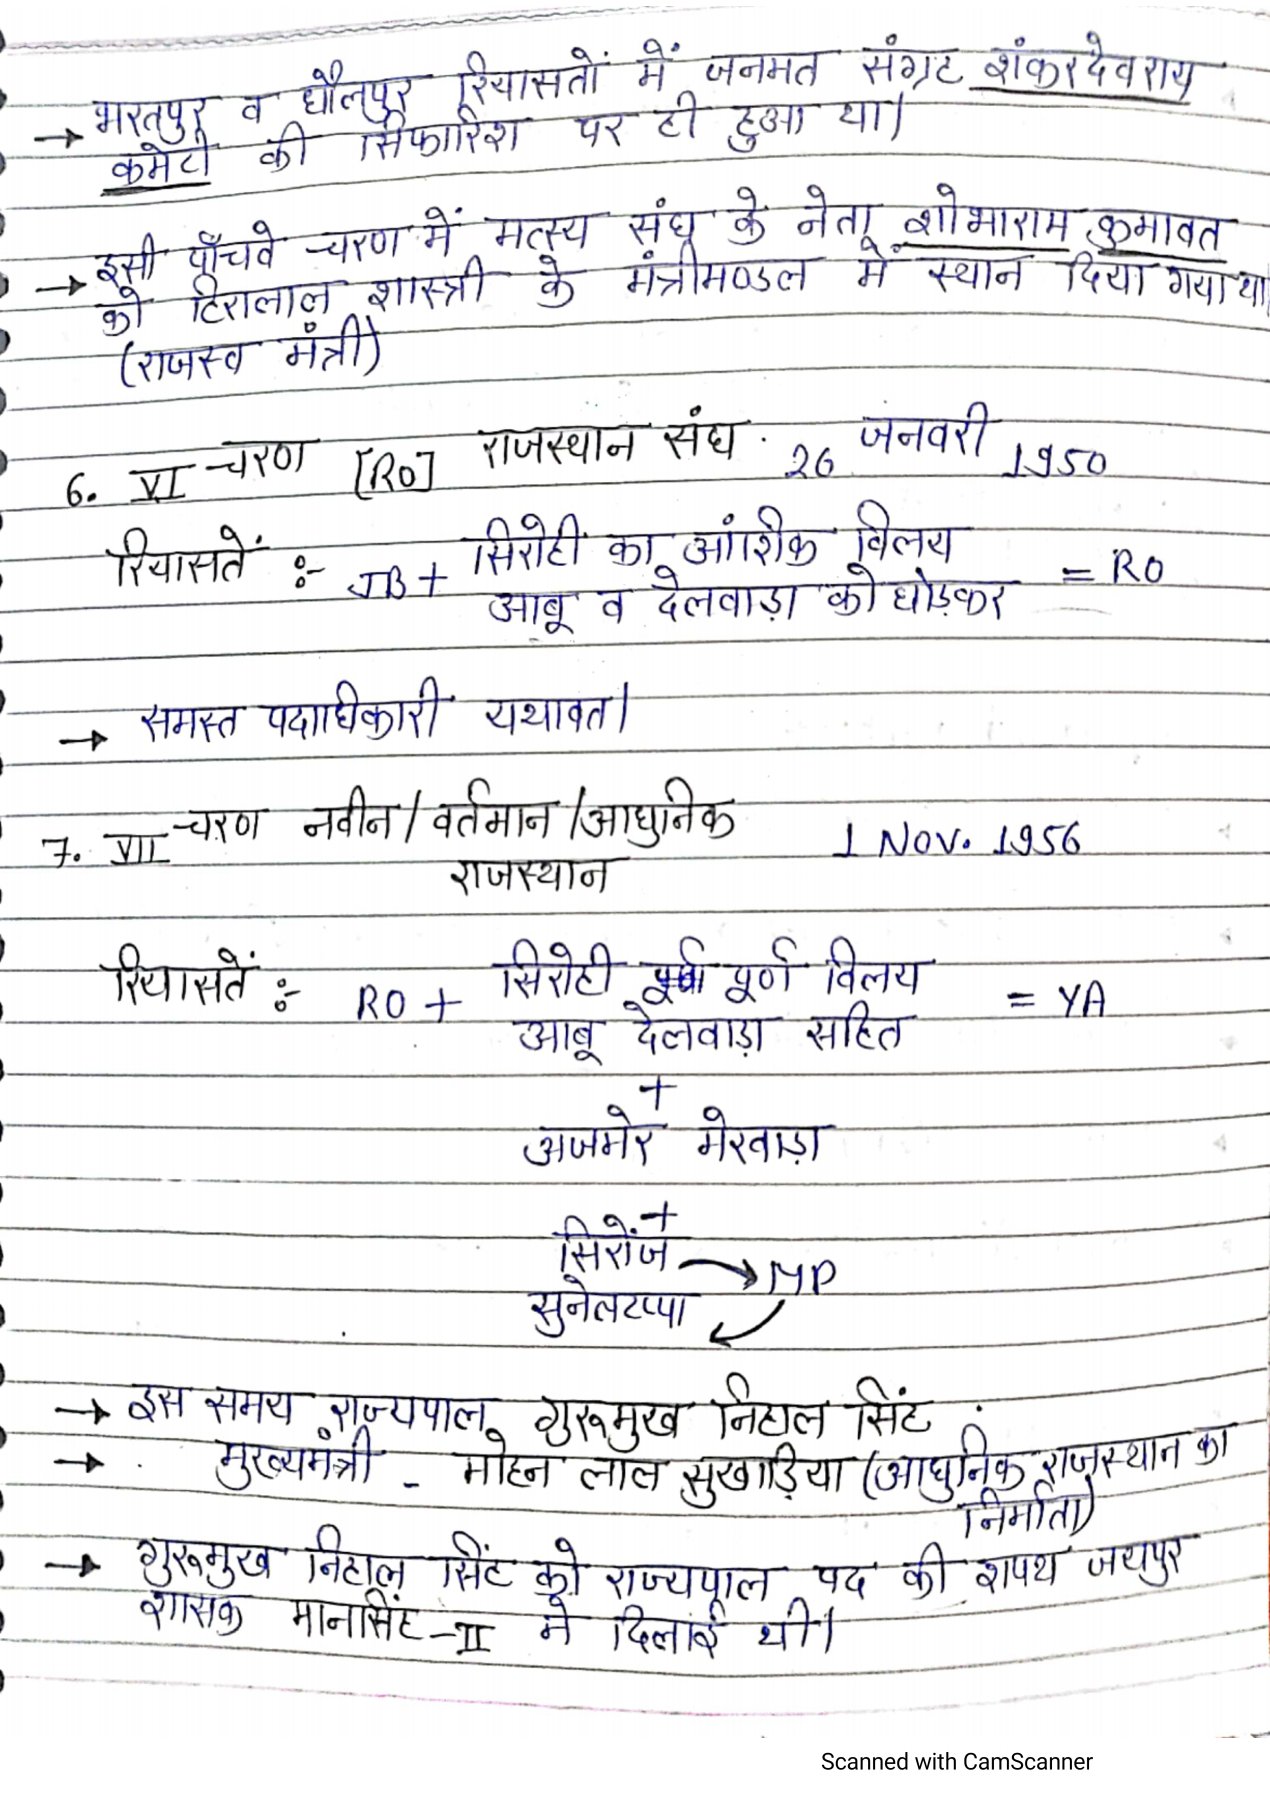 → भरतपुर व धौलपुर रियासतों में जनमत संग्रह शंकरदेवराय
कमेटी की सिफारिश पर ही हुआ था।
→ इसी पाँचवे चरण में मत्स्य संघ के नेता शोभाराम कुमावत
को हिरालाल शास्त्री के मंत्रीमण्डल में स्थान दिया गया था
(राजस्व मंत्री)
6. VI चरण [RO] राजस्थान संघ . 26 जनवरी 1950
रियासतें :- JB + सिरोही का आंशिक विलय = RO
आबू व देलवाड़ा को छोड़कर
→ समस्त पदाधिकारी यथावत।
7. VII चरण नवीन / वर्तमान / आधुनिक 1 Nov. 1956
राजस्थान
रियासतें :- RO + सिरोही पूर्ण विलय = YA
आबू देलवाड़ा सहित
+
अजमेर मेरवाड़ा
+
सिरोंज → MP
सुनेलटप्पा
→ इस समय राज्यपाल गुरूमुख निहाल सिंह
→ मुख्यमंत्री - मोहन लाल सुखाड़िया (आधुनिक राजस्थान का
निर्माता)
→ गुरूमुख निहाल सिंह को राज्यपाल पद की शपथ जयपुर
शासक मानसिंह-II ने दिलाई थी।
Scanned with CamScanner